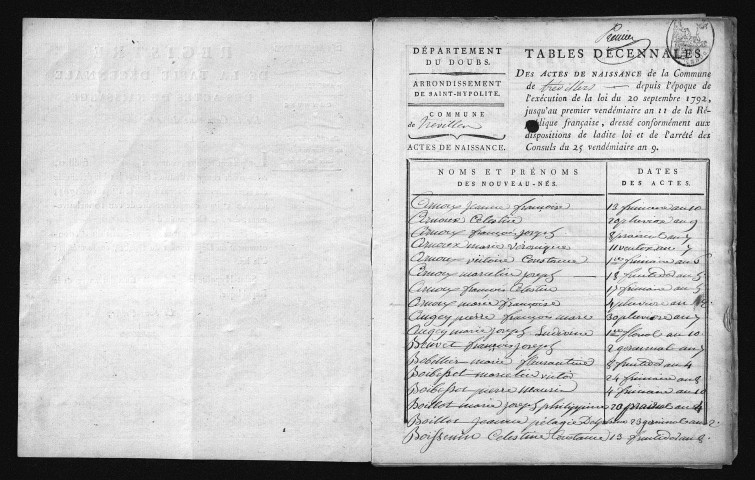 Premier
DÉPARTEMENT
DU DOUBS.
ARRONDISSEMENT
DE SAINT-HYPOLITE.
COMMUNE
de trevillers
ACTES DE NAISSANCE.
TABLES DÉCENNALES
DES ACTES DE NAISSANCE de la Commune
de trevillers depuis l'époque de
l'exécution de la loi du 20 septembre 1792,
jusqu'au premier vendémiaire an 11 de la Ré-
publique française, dressé conformément aux
dispositions de ladite loi et de l'arrêté des
Consuls du 25 vendémiaire an 9.
NOMS ET PRÉNOMS
DES NOUVEAU-NÉS.
DATES
DES ACTES.
Arnoux jeanne françoise 13 frimaire an 10
Arnoux Celestin 29 pluviose an 9
Arnoux françois joseph 8 prairial an 7
Arnoux marie véronique 11 ventose an 7
Arnoux victoire Constance 1er frimaire an 6
Arnoux marcelin joseph 18 fructidor an 5
Arnoux françois Celestin 17 frimaire an 5
Arnoux marie françoise 4 pluviose an 2
Augey pierre françois marie 30 pluviose an 7
Augey marie joseph 1er floreal an 10
françois joseph 2 germinal an 7
Bobillier marie florentine 8 fructidor an 4
Boibessot marcelin victor 24 frimaire an 8
Boibessot pierre 4 frimaire an 10
Boillot marie joseph philippine 20 prairial an 4
Boillot jeanne pélagie 23 germinal an 2
Boissenin Celestine Constance 13 fructidor an 8